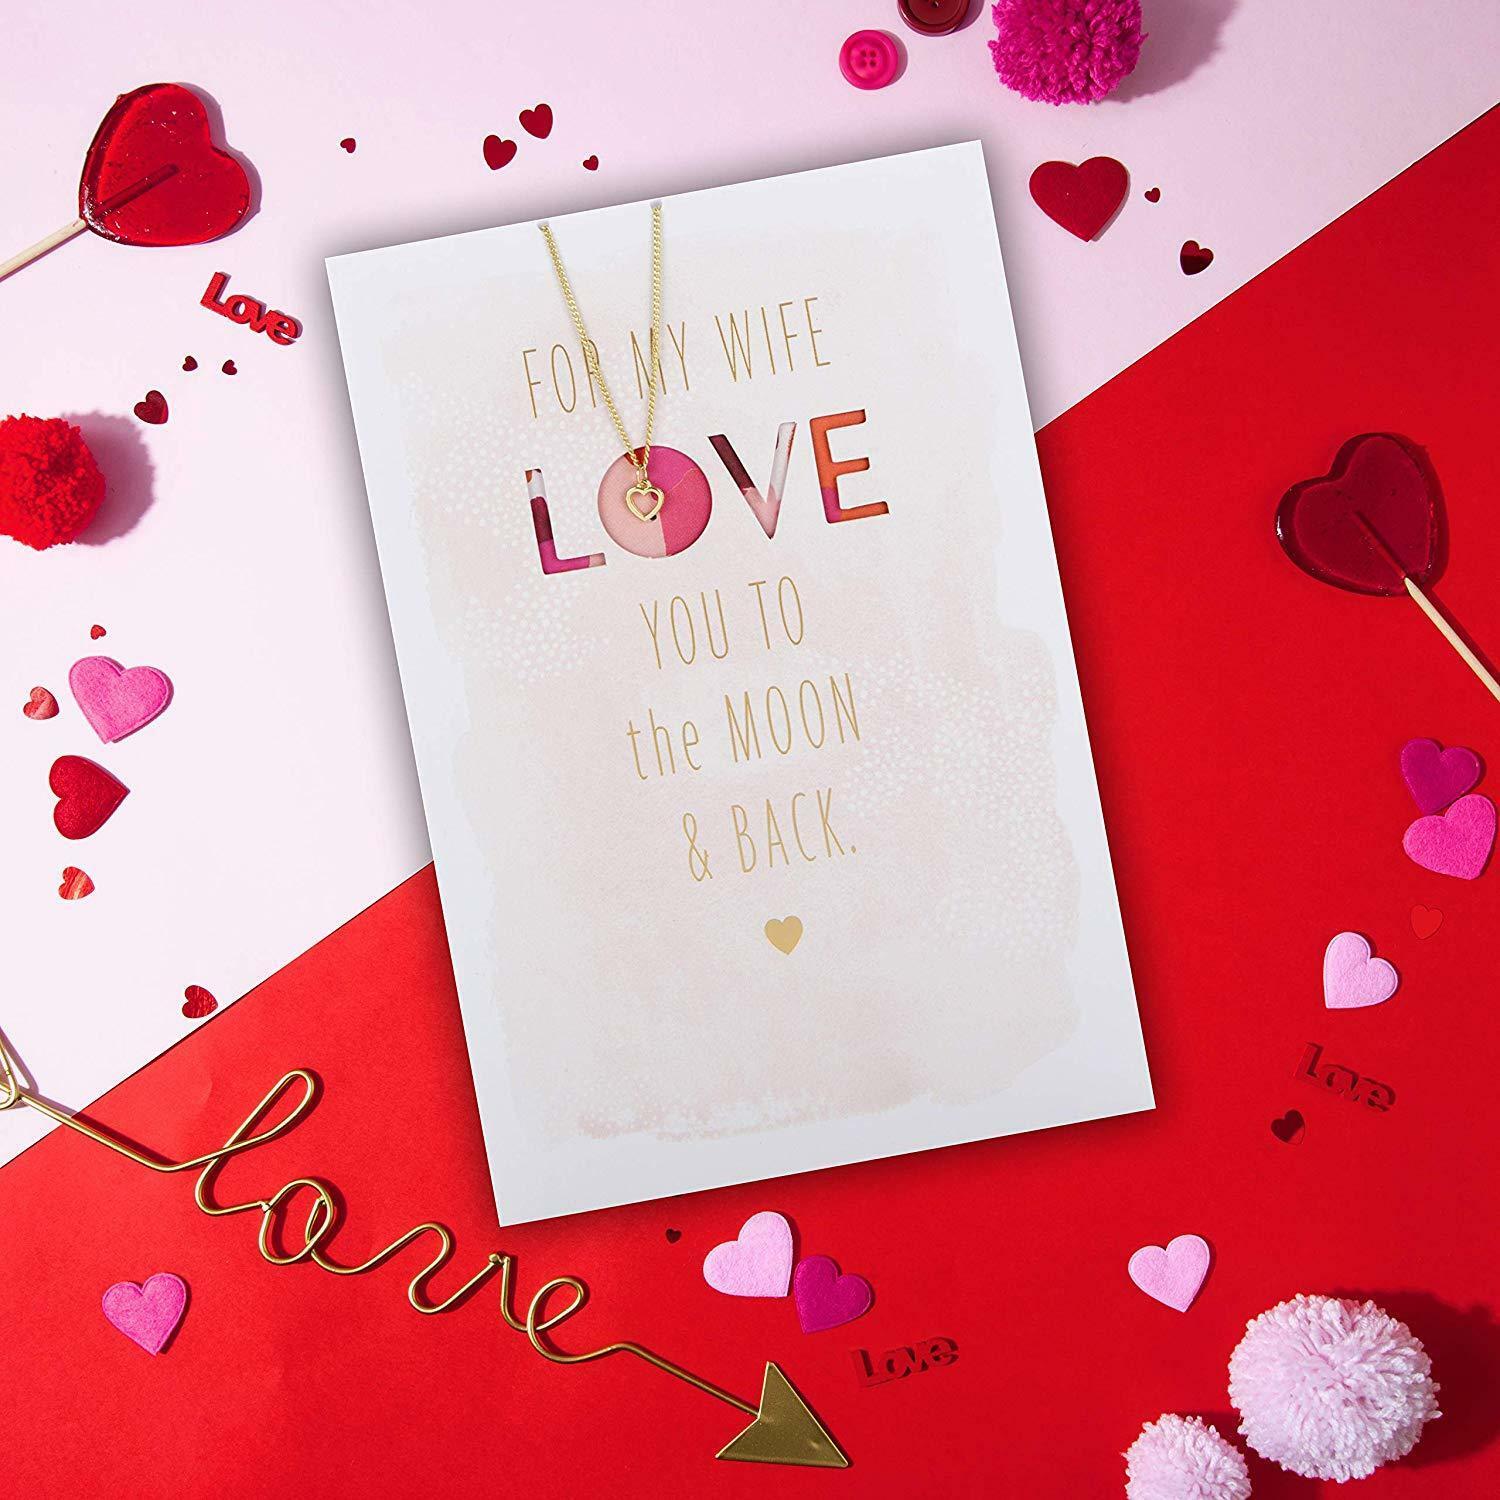 Love
FOR MY WIFE
LOVE
YOU TO
the MOON
& BACK.
Love
love
Love